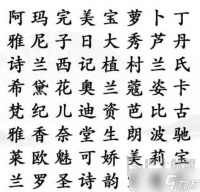 阿玛完美宝萝卜丁
雅尼子日大秀芦丹
诗兰西记植村兰氏
希黛花奥兰蔻姿卡
梵纪儿迪资芭比古
雅香奈堂生朗波驰
莱欧魅可娇美莉宝
兰罗圣诗韵